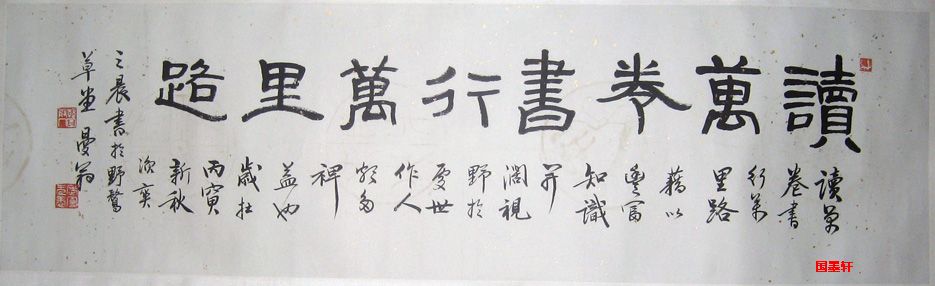 讀萬卷書行萬里路
讀萬
卷書
行萬
里路
藉以
豐富
知識
并
濶視
野於
處世
作人
頗多
裨
益也
歲在
丙寅
新秋
亥
之晨書於野鶩
草堂曼翁
国墨轩